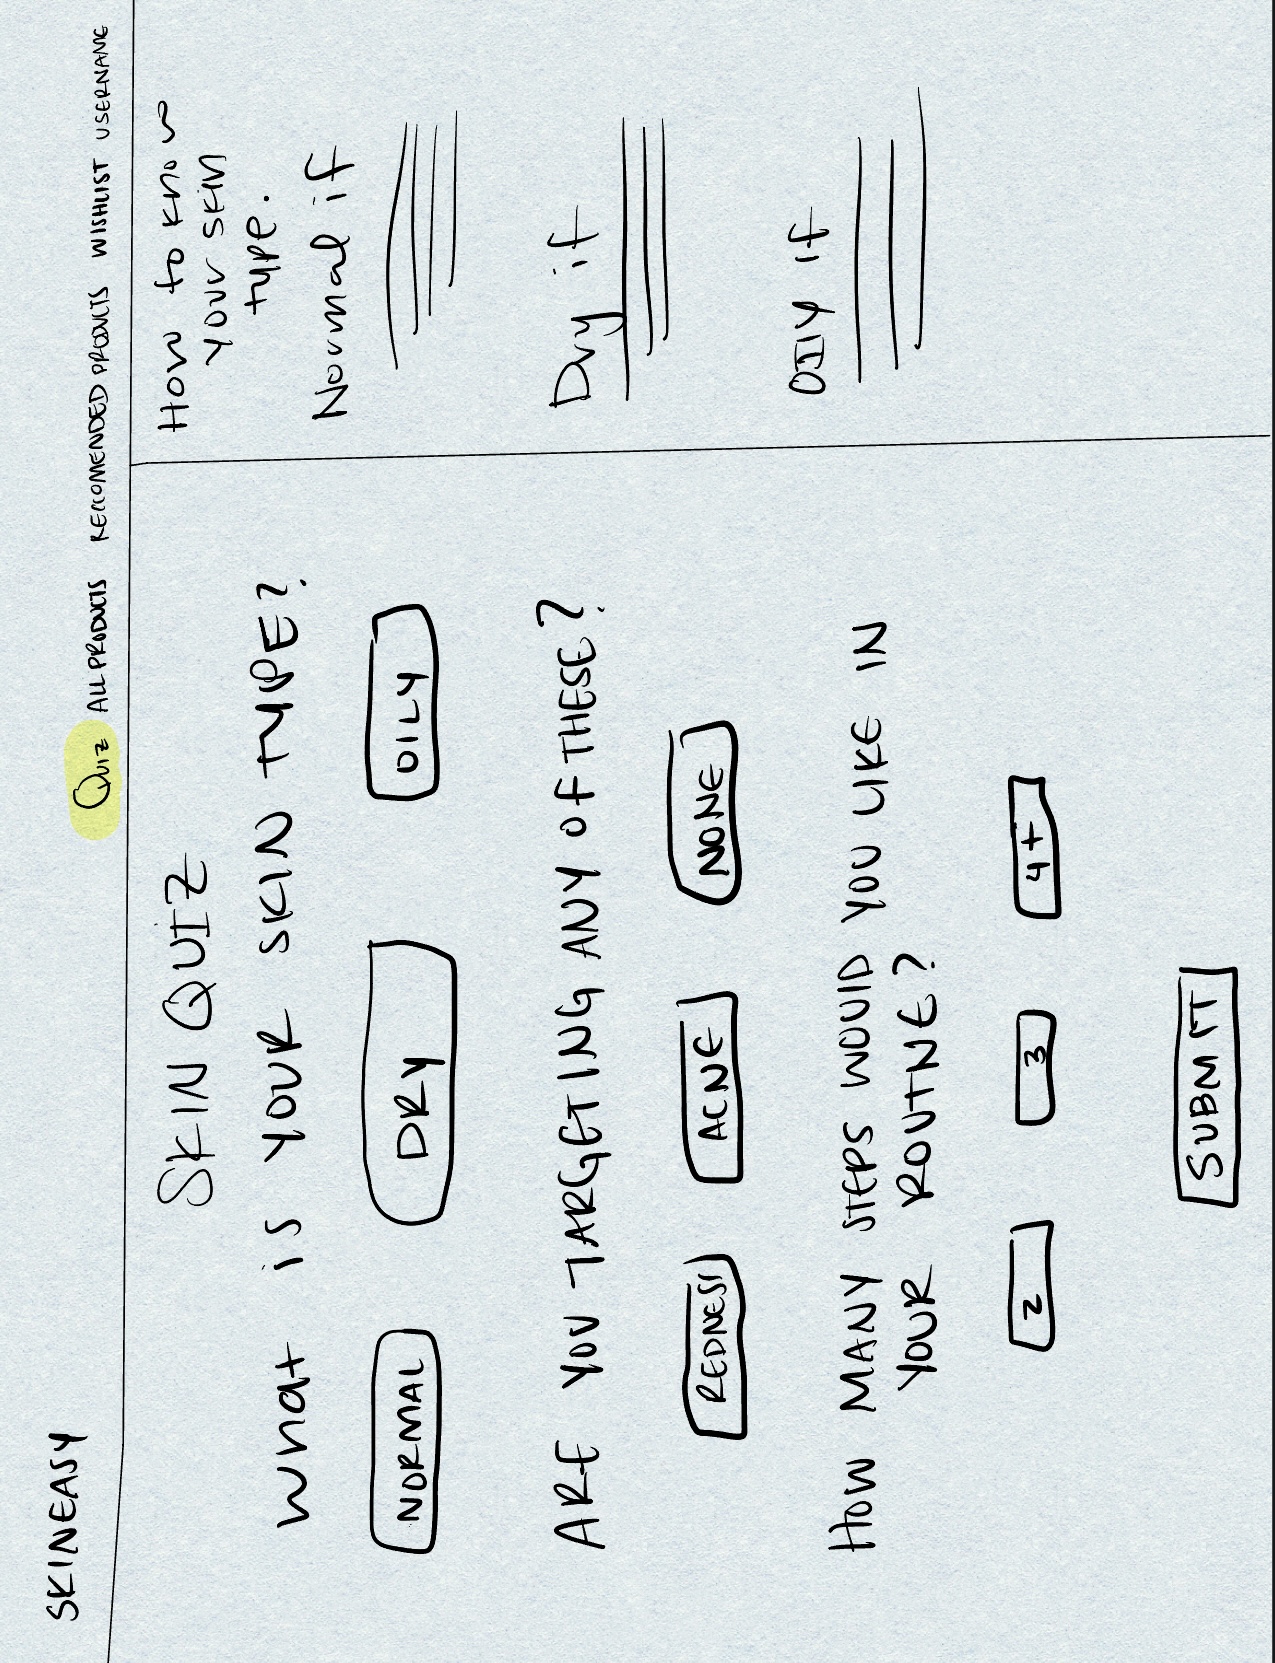 SKINEASY
Quiz ALL PRODUCTS RECCOMENDED PRODUCTS WISHLIST USERNAME
SKIN QUIZ
What is YOUR SKIN TYPE?
NORMAL DRY OILY
ARE YOU TARGETING ANY OF THESE?
REDNESS ACNE NONE
HOW MANY STEPS WOULD YOU LIKE IN
YOUR ROUTNE?
2 3 4+
SUBMIT
How to know
your skin
type.
Normal if
Dry if
Oily if